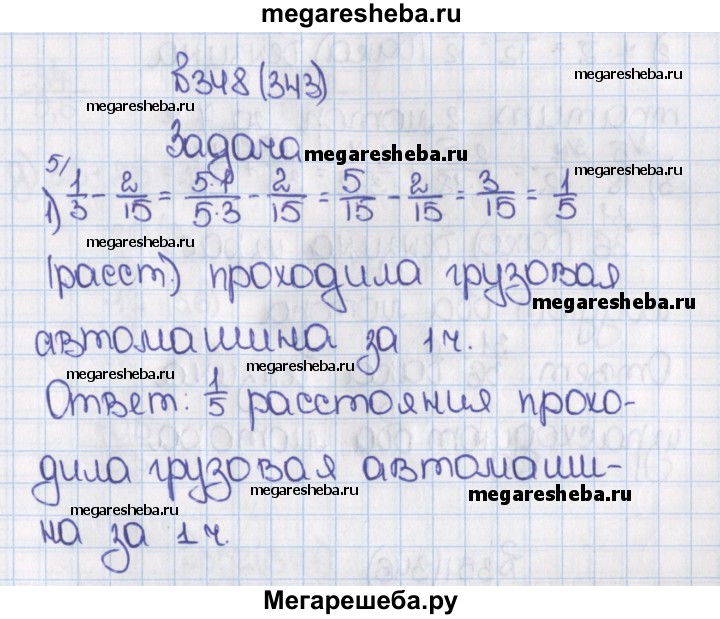 megaresheba.ru
В348 (343)
megaresheba.ru
megaresheba.ru
Задача
megaresheba.ru
5/
1) 1/3 - 2/15 = 5·1/5·3 - 2/15 = 5/15 - 2/15 = 3/15 = 1/5
megaresheba.ru
(расст.) проходила грузовая
megaresheba.ru
автомашина за 1 ч.
megaresheba.ru
megaresheba.ru
Ответ: 1/5 расстояния прохо-
дила грузовая автомаши-
megaresheba.ru
megaresheba.ru
megaresheba.ru
на за 1 ч.
Мегарешеба.ру